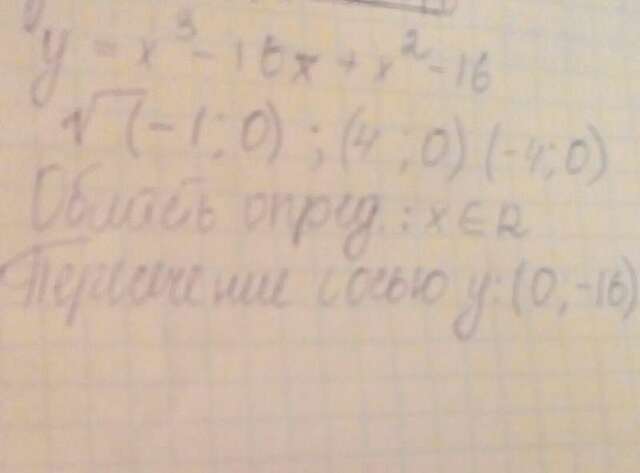 y = x³ - 16x + x² - 16
√ (-1; 0) ; (4 ; 0) (-4; 0)
Область опред. : x ∈ R
Пересечение с осью y: (0; -16)